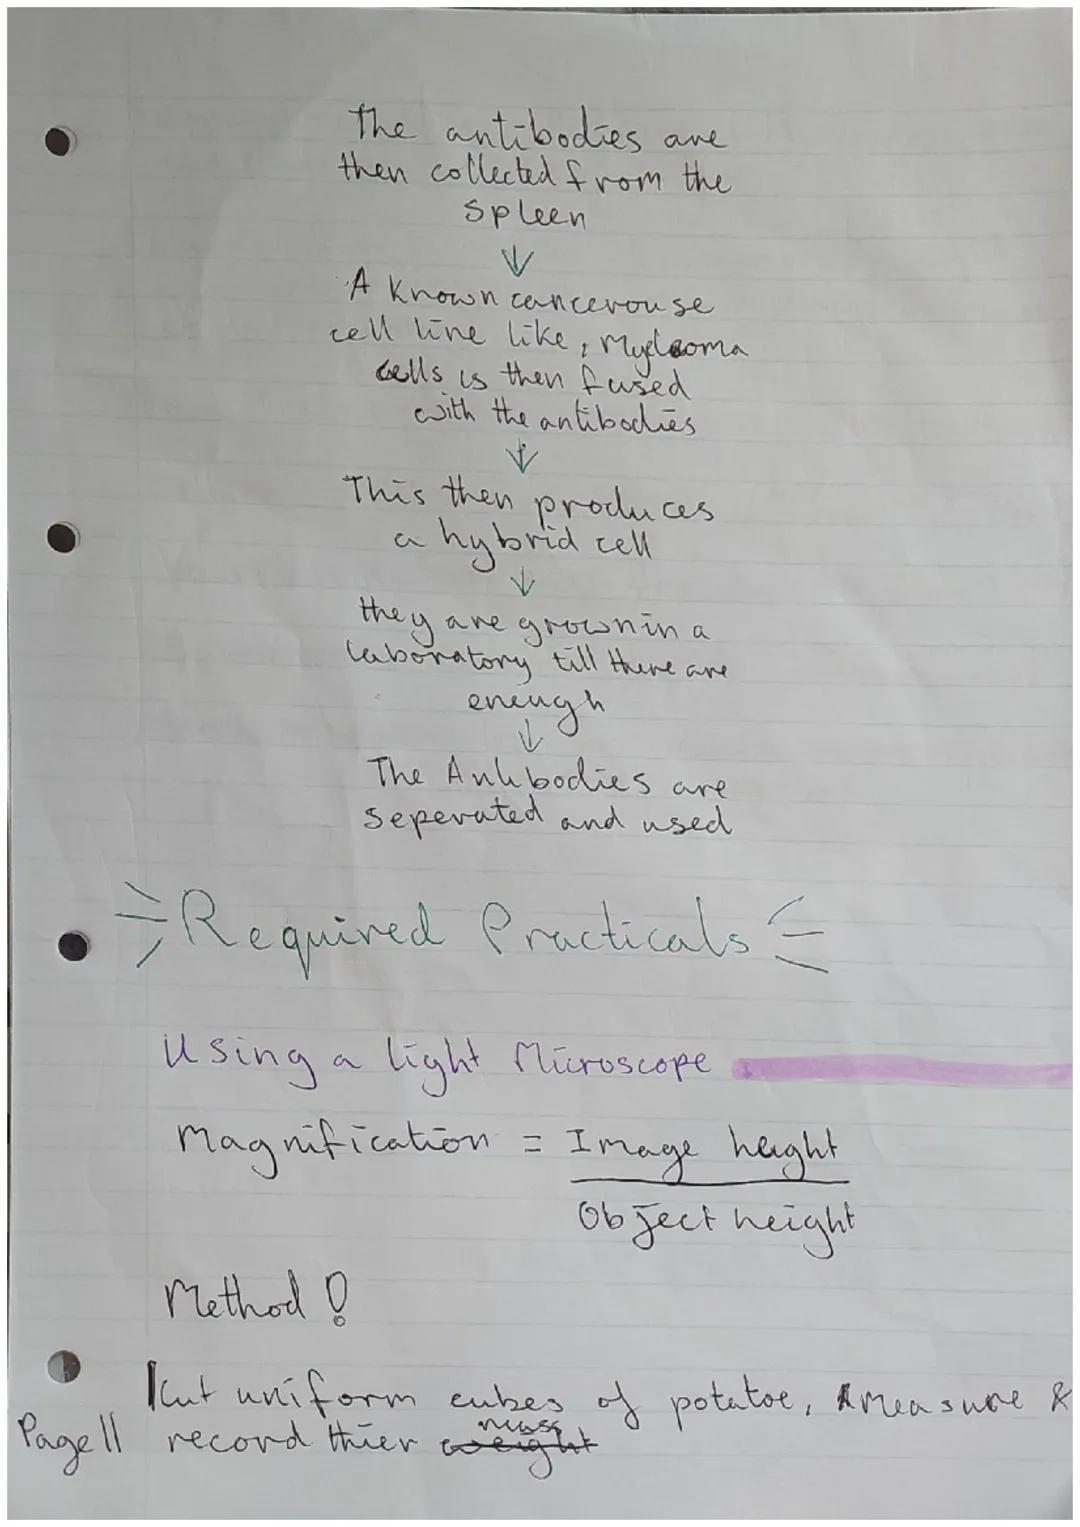 The antibodies are
then collected from the
spleen
↓
A known cancerouse
cell line like, Myeloma
cells is then fused
with the antibodies
↓
This then produces
a hybrid cell
↓
they are grown in a
laboratory till there are
enough
↓
The Antibodies are
seperated and used
Required Practicals
Using a light Microscope
Magnification = Image height
Object height
Method!
1 Cut uniform cubes of potatoe, measure &
mass
Page 11 record thier weight